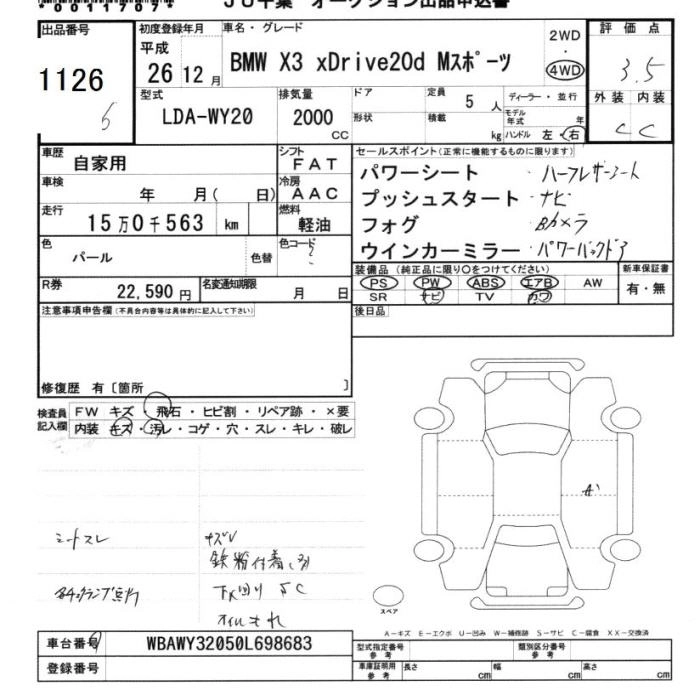 00117074
JU千葉 オークション出品申込書
出品番号 初度登録年月 車名・グレード 評価点
1126 平成 26 12月 BMW X3 xDrive20d Mスポーツ 2WD・4WD 3.5
6
型式 排気量 ドア 定員 ディーラー・並行 外装 内装
LDA-WY20 2000 CC 5人 モデル年式 年 C C
形状 積載 kg ハンドル 左・右
車歴 自家用 シフト FAT セールスポイント(正常に機能するものに限ります)
車検 年 月( 日) 冷房 AAC パワーシート ・ハーフレザーシート
走行 15万0千563 km 燃料 軽油 プッシュスタート ・ナビ
フォグ ・Bカメラ
色 パール 色替 色コード ウインカーミラー ・パワーバックドア
装備品(純正品に限り○をつけてください) 新車保証書
R券 22,590円 名変通知期限 月 日 PS PW ABS エアB AW 有・無
SR ナビ TV カワ
注意事項申告欄(不具合内容等は具体的に記入して下さい) 後日品
修復歴 有〔箇所 〕
検査員記入欄 FW キズ・飛石・ヒビ割・リペア跡・×要
内装 キズ・汚レ・コゲ・穴・スレ・キレ・破レ
A¹
シートスレ キズU
鉄粉付着
下廻り SC
オイルもれ
スペア
A-キズ E-エクボ U-凹み W-補修跡 S-サビ C-腐食 XX-交換済
車台番号 WBAWY32050L698683 型式指定番号 参考 類別区分番号 参考
登録番号 車庫証明用 参考 長さ cm 幅 cm 高さ cm